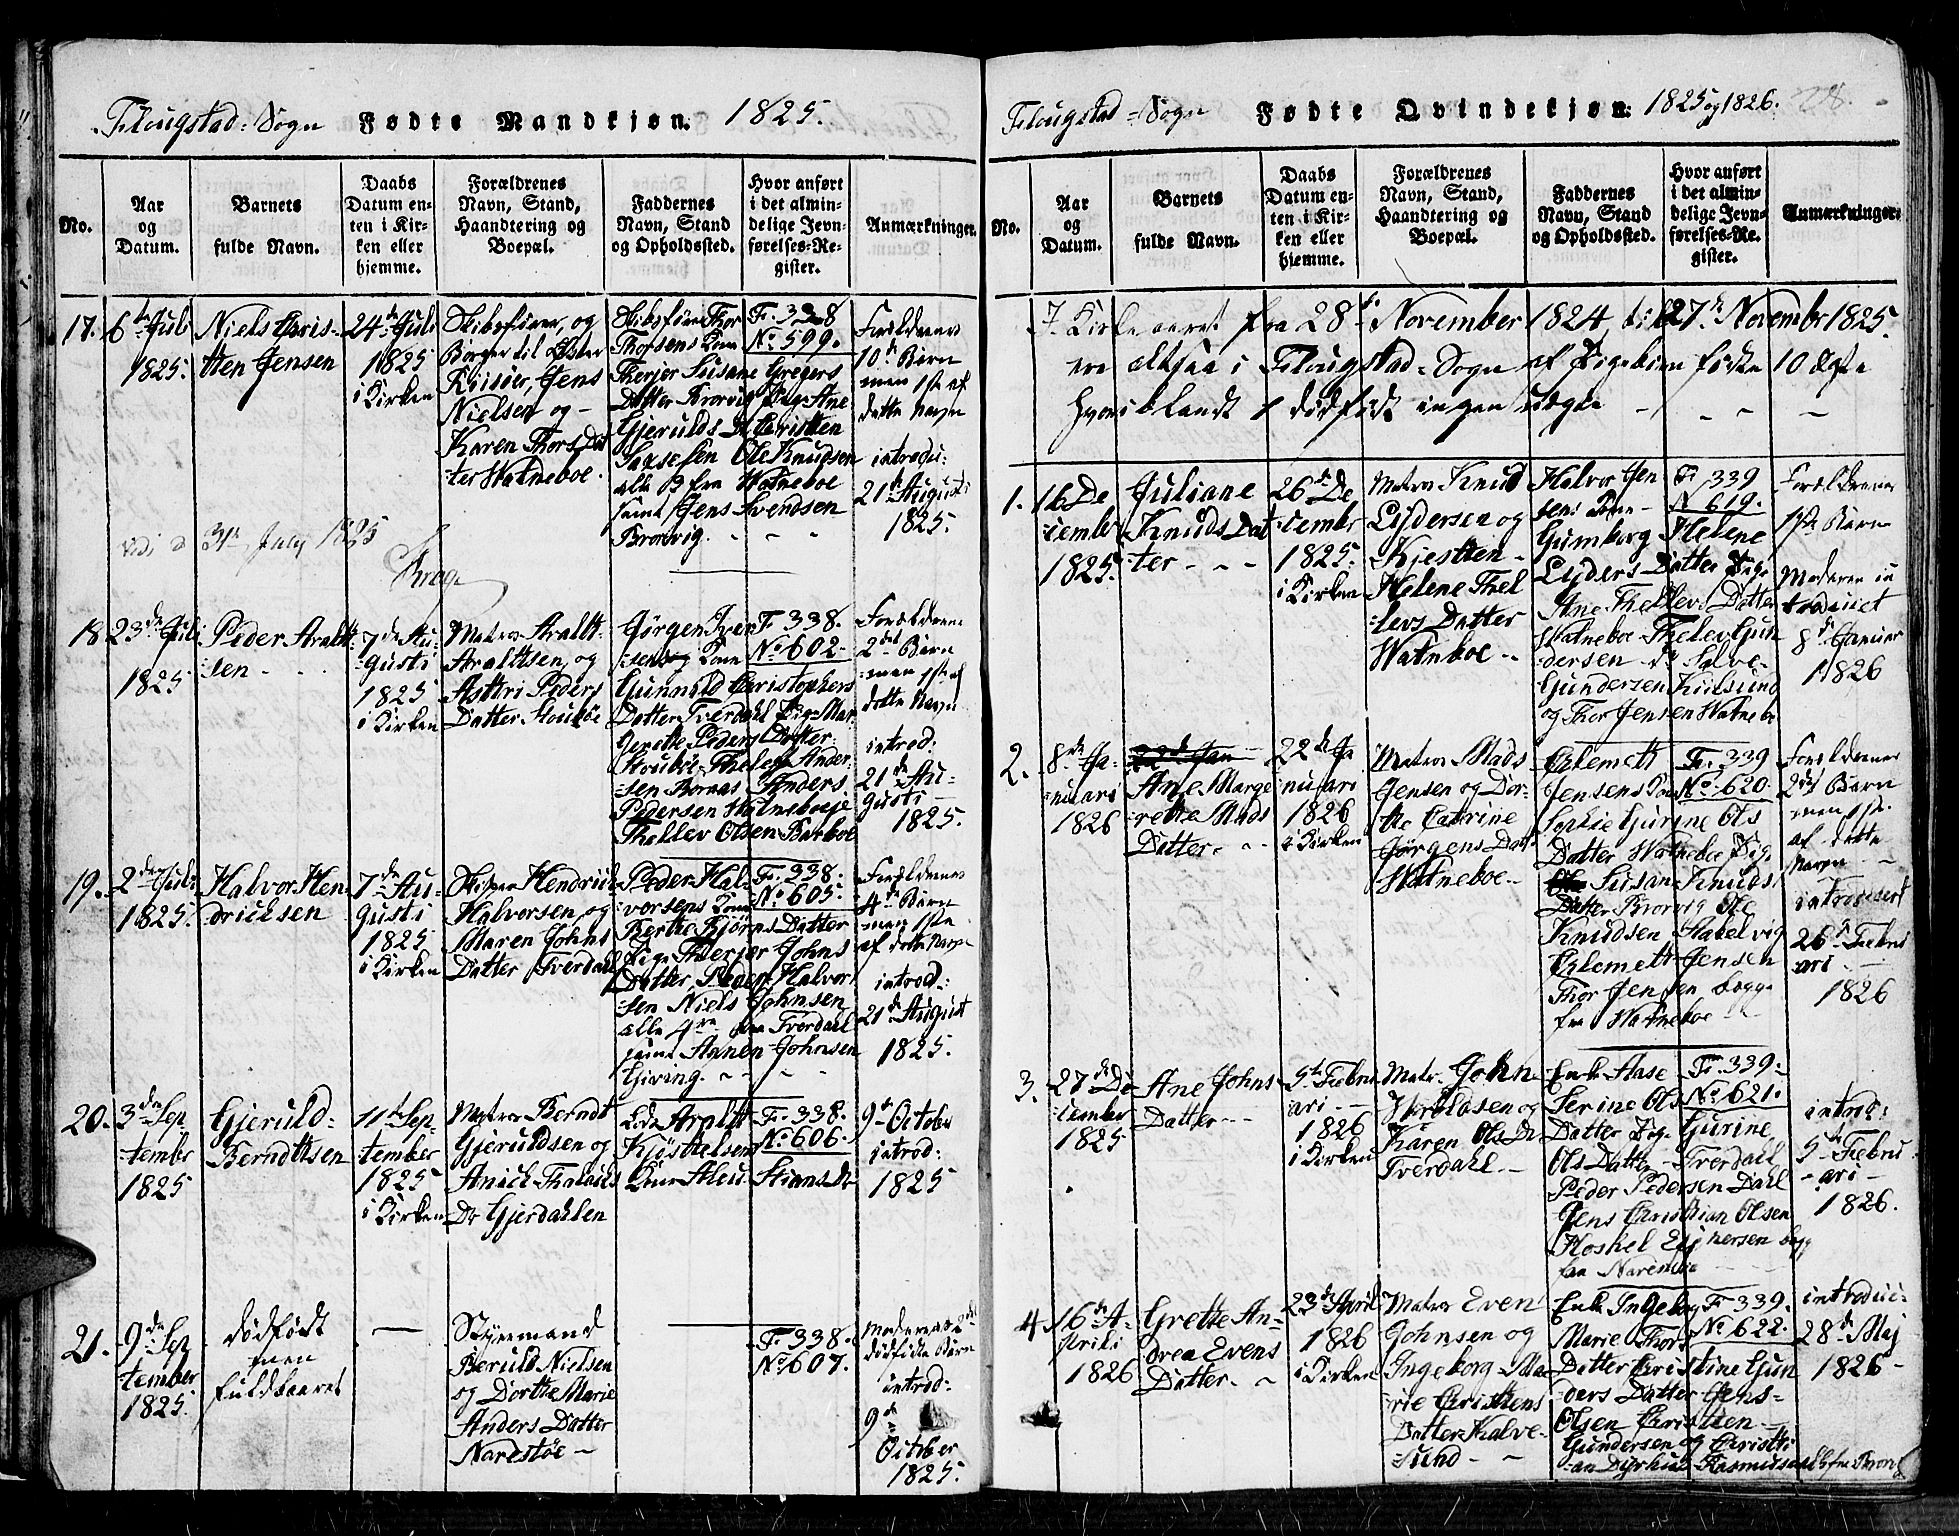 Flougstad-Sogn Fødte Mandkjøn. 1825.
No.
Aar
og
Datum.
Barnets
fulde Navn.
Daabs
Datum en-
ten i Kir-
ken eller
hjemme.
Forældrenes
Navn, Stand,
Haandtering og
Boepæl.
Faddernes
Navn, Stand
og Opholdssted.
Hvor anført
i det almin-
delige Jevn-
førelses-Re-
gister.
Anmærkninger.
17.
6te Juli
1825.
Niels Chris-
tten Jensen
24de Juli
1825
i Kirken
Skibsfører, og
Borger til Øster
Riisøer, Jens
Nielsen og -
Karen Thors Dat
ter Watneboe.
Skibsfører Thor
Thorsens Kone
Therjer Susane Gregers
Datter Brorvig Pige Ane
Gjerulds Dr Christten
Ole Knudsen
alle fra Watneboe
samt Jens Svendsen
Brorvig.
F. 338
No. 599.
Forældrenes
10de Barn
men 1ste af
dette Navn
introdu:
21de Augusti
1825.
31te July 1825
Krog
18
23de Juli
1825
Peder Araltt-
sen
7de Au-
gusti
1825
i Kirken
Matros Araltt-
Aralttsen, og
Asttri Peders
Datter Stoubøe
Jørgen Iver
sens Kone
Gunnild Christophers
Datter Tverdahl Pige Mar
Grethe Peders Datter
Stouboe Thelef Ander-
sen Anders
Pedersen Watneboe
Thellev Olsen Barboe
F. 338.
No. 602.
Forældrenes
2det Barn
men 1ste af
dette Navn
introd:
21de Au-
gusti
1825.
19.
2den Juli
1825.
Halvor Hen
dricksen
7de Au-
gusti
1825
i Kirken
Skipper Hendrick
Halvorsen, og
Maren Johns
Datter Tverdahl
Peder Hal-
vorsens Kone
Berthe Bjørns Datter
Pige Therjer Johns
Datter, Peder Halvor
sen Niels Johnsen
alle 4re fra Tverdahl
samt Aanen Johnsen
Giving.
F. 338.
No. 605.
Forældrenes
4de Barn
men 1ste
af dette Navn
introd:
21de August
1825.
20.
3die Sep-
tember
1825
Gjeruld-
Berndttsen
11te Sep-
tember
1825
i Kirken
Matros Berndt
Gjeruldsen og
Anich Thalovs
Dr Gjerdahlen
Araltt
Kjøsttelsens
Kone Aleu Stians Dr
F. 338.
No. 606.
9de October
introd:
1825
21.
9de Sep
tember
1825.
dødfødt
men
fuldbaaret
Styrmand
Beruld Nielsen
og Dorthe Marie
Anders Datter
Narestøe -
F. 338.
No. 607.
Moderens 2det
dødfødte Barn
introd:
9de
October
1825.
Flougstad-Sogn Fødte Qvindekjøn. 1825 og 1826. 28.
No.
Aar
og
Datum.
Barnets
fulde Navn.
Daabs
Datum en-
ten i Kir-
ken eller
hjemme.
Forældrenes
Navn, Stand,
Haandtering og
Boepæl.
Faddernes
Navn, Stand
og Opholdssted.
Hvor anført
i det almin-
delige Jevn-
førelses-Re-
gister.
Anmærkninger.
I Kirkeaaret fra 28de November 1824 til 27de Novembr 1825.
ere altsaa i Flougstad-Sogn af Pigebørn fødte 10 ægte
hvoriblandt 1 dødfødt ingen uægte
1.
16 De
cembr
1825.
Juliane
Knuds Dat
ter
26de De
cembr
1825.
i Kirken
Matros Knud
Lydersen og
Kjestten
Helene Thel
levs Datter
Watneboe
Halvor Jen
sens Kone
Gumborg Helene
Lyders Datter Pige
Ane Thellevs Datter
Watneboe Thelev Gun
dersen Salve
Gundersen Kielsund
og Thor Jensen Watnebo
F. 339
N 619.
Forældrenes
1ste Barn
Moderen in
troduciret
8de Januar
1826
2.
8de Ja-
nuari
1826
22de Jan
Ane Marge
rethe Mads
Datter.
22de Ja
nuari
1826
i Kirken
Matros Mads
Jensen og Dor-
the Catrine
Jørgens Datt
Watneboe
Clemett
Jensens Kone
Sophie Gurine Ols
Datter Watneboe Pig.
Susan Knuds
Datter Brorvig Ole
Knudsen Hakelvig
Clemett Jensen
Thor Jensen begge
fra Watneboe
F. 339
No. 620.
Forældrenes
2det Barn
men 1ste
af dette
Navn
introducert
26de Febru
ari
1826
3.
27de De
cember
1825
Ane Johns
Datter
5te Febru
ari
1826
i Kirken
Matr. John
Haroldsen og
Karen Ols Dr
Tverdahl
Enke Aase
Serine Ols
Datter Pige Gurine
Ols Datter Tverdahl
Peder Pedersen Dahl
Jens Christian Olsen
begge
fra
F. 339.
No. 621.
introd:
5te Febru
ari
1826.
4
16de A-
prili
1826
Grethe An-
drea Evens
Datter.
23de April
1826
i Kirken
Matros Even
Johnsen og
Ingeborg Ma-
rie Christens
Datter Kalve-
sund
Enke Ingeborg
Marie Thors
Datter Christine Gun
ders Datter Jens
Olsen Christten
Gundersen og Christti
an Dyrhus Rasmussen alle fra
F. 339.
No. 622.
introduci:
28de Maj
1826